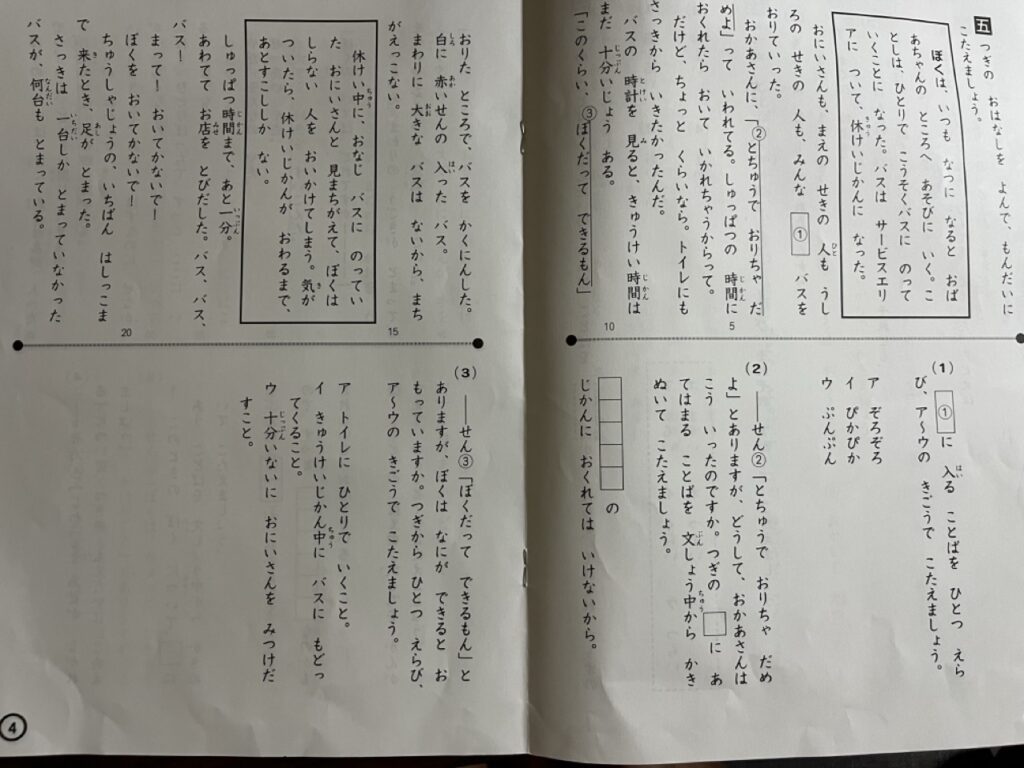 五 つぎの おはなしを よんで、もんだいに
こたえましょう。
ぼくは、いつも なつに なると おば
あちゃんの ところへ あそびに いく。こ
としは、ひとりで こうそくバスに のって
いくことに なった。バスは サービスエリ
アに ついて、休けいじかんに なった。
おにいさんも、まえの せきの 人も うし
ろの せきの 人も、みんな ① バスを
おりていった。
おかあさんに、「②とちゅうで おりちゃ だ
めよ」って いわれてる。しゅっぱつの 時間に
おくれたら おいて いかれちゃうからって。
だけど、ちょっと くらいなら。トイレにも
さっきから いきたかったんだ。
バスの 時計を 見ると、きゅうけい時間は
まだ 十分いじょう ある。
「このくらい、③ぼくだって できるもん」
おりた ところで、バスを かくにんした。
白に 赤いせんの 入った バス。
まわりに 大きな バスは ないから、まち
がえっこない。
休けい中に、おなじ バスに のってい
た おにいさんと 見まちがえて、ぼくは
しらない 人を おいかけてしまう。気が
ついたら、休けいじかんが おわるまで、
あとすこししか ない。
しゅっぱつ時間まで、あと一分。
あわてて お店を とびだした。バス、バス、
バス!
まって! おいてかないで!
ぼくを おいてかないで!
ちゅうしゃじょうの、いちばん はしっこま
で 来たとき、足が とまった。
さっきは 一台しか とまっていなかった
バスが、何台も とまっている。
5
10
15
20
(1) ①に 入る ことばを ひとつ えら
び、ア〜ウの きごうで こたえましょう。
ア ぞろぞろ
イ ぴかぴか
ウ ぷんぷん
(2) ——せん②「とちゅうで おりちゃ だめ
よ」とありますが、どうして、おかあさんは
こう いったのですか。つぎの □に あ
てはまる ことばを 文しょう中から かき
ぬいて こたえましょう。
□□□□□の
じかんに おくれては いけないから。
(3) ——せん③「ぼくだって できるもん」と
ありますが、ぼくは なにが できると お
もっていますか。つぎから ひとつ えらび、
ア〜ウの きごうで こたえましょう。
ア トイレに ひとりで いくこと。
イ きゅうけいじかん中に バスに もどっ
てくること。
ウ 十分いないに おにいさんを みつけだ
すこと。
4